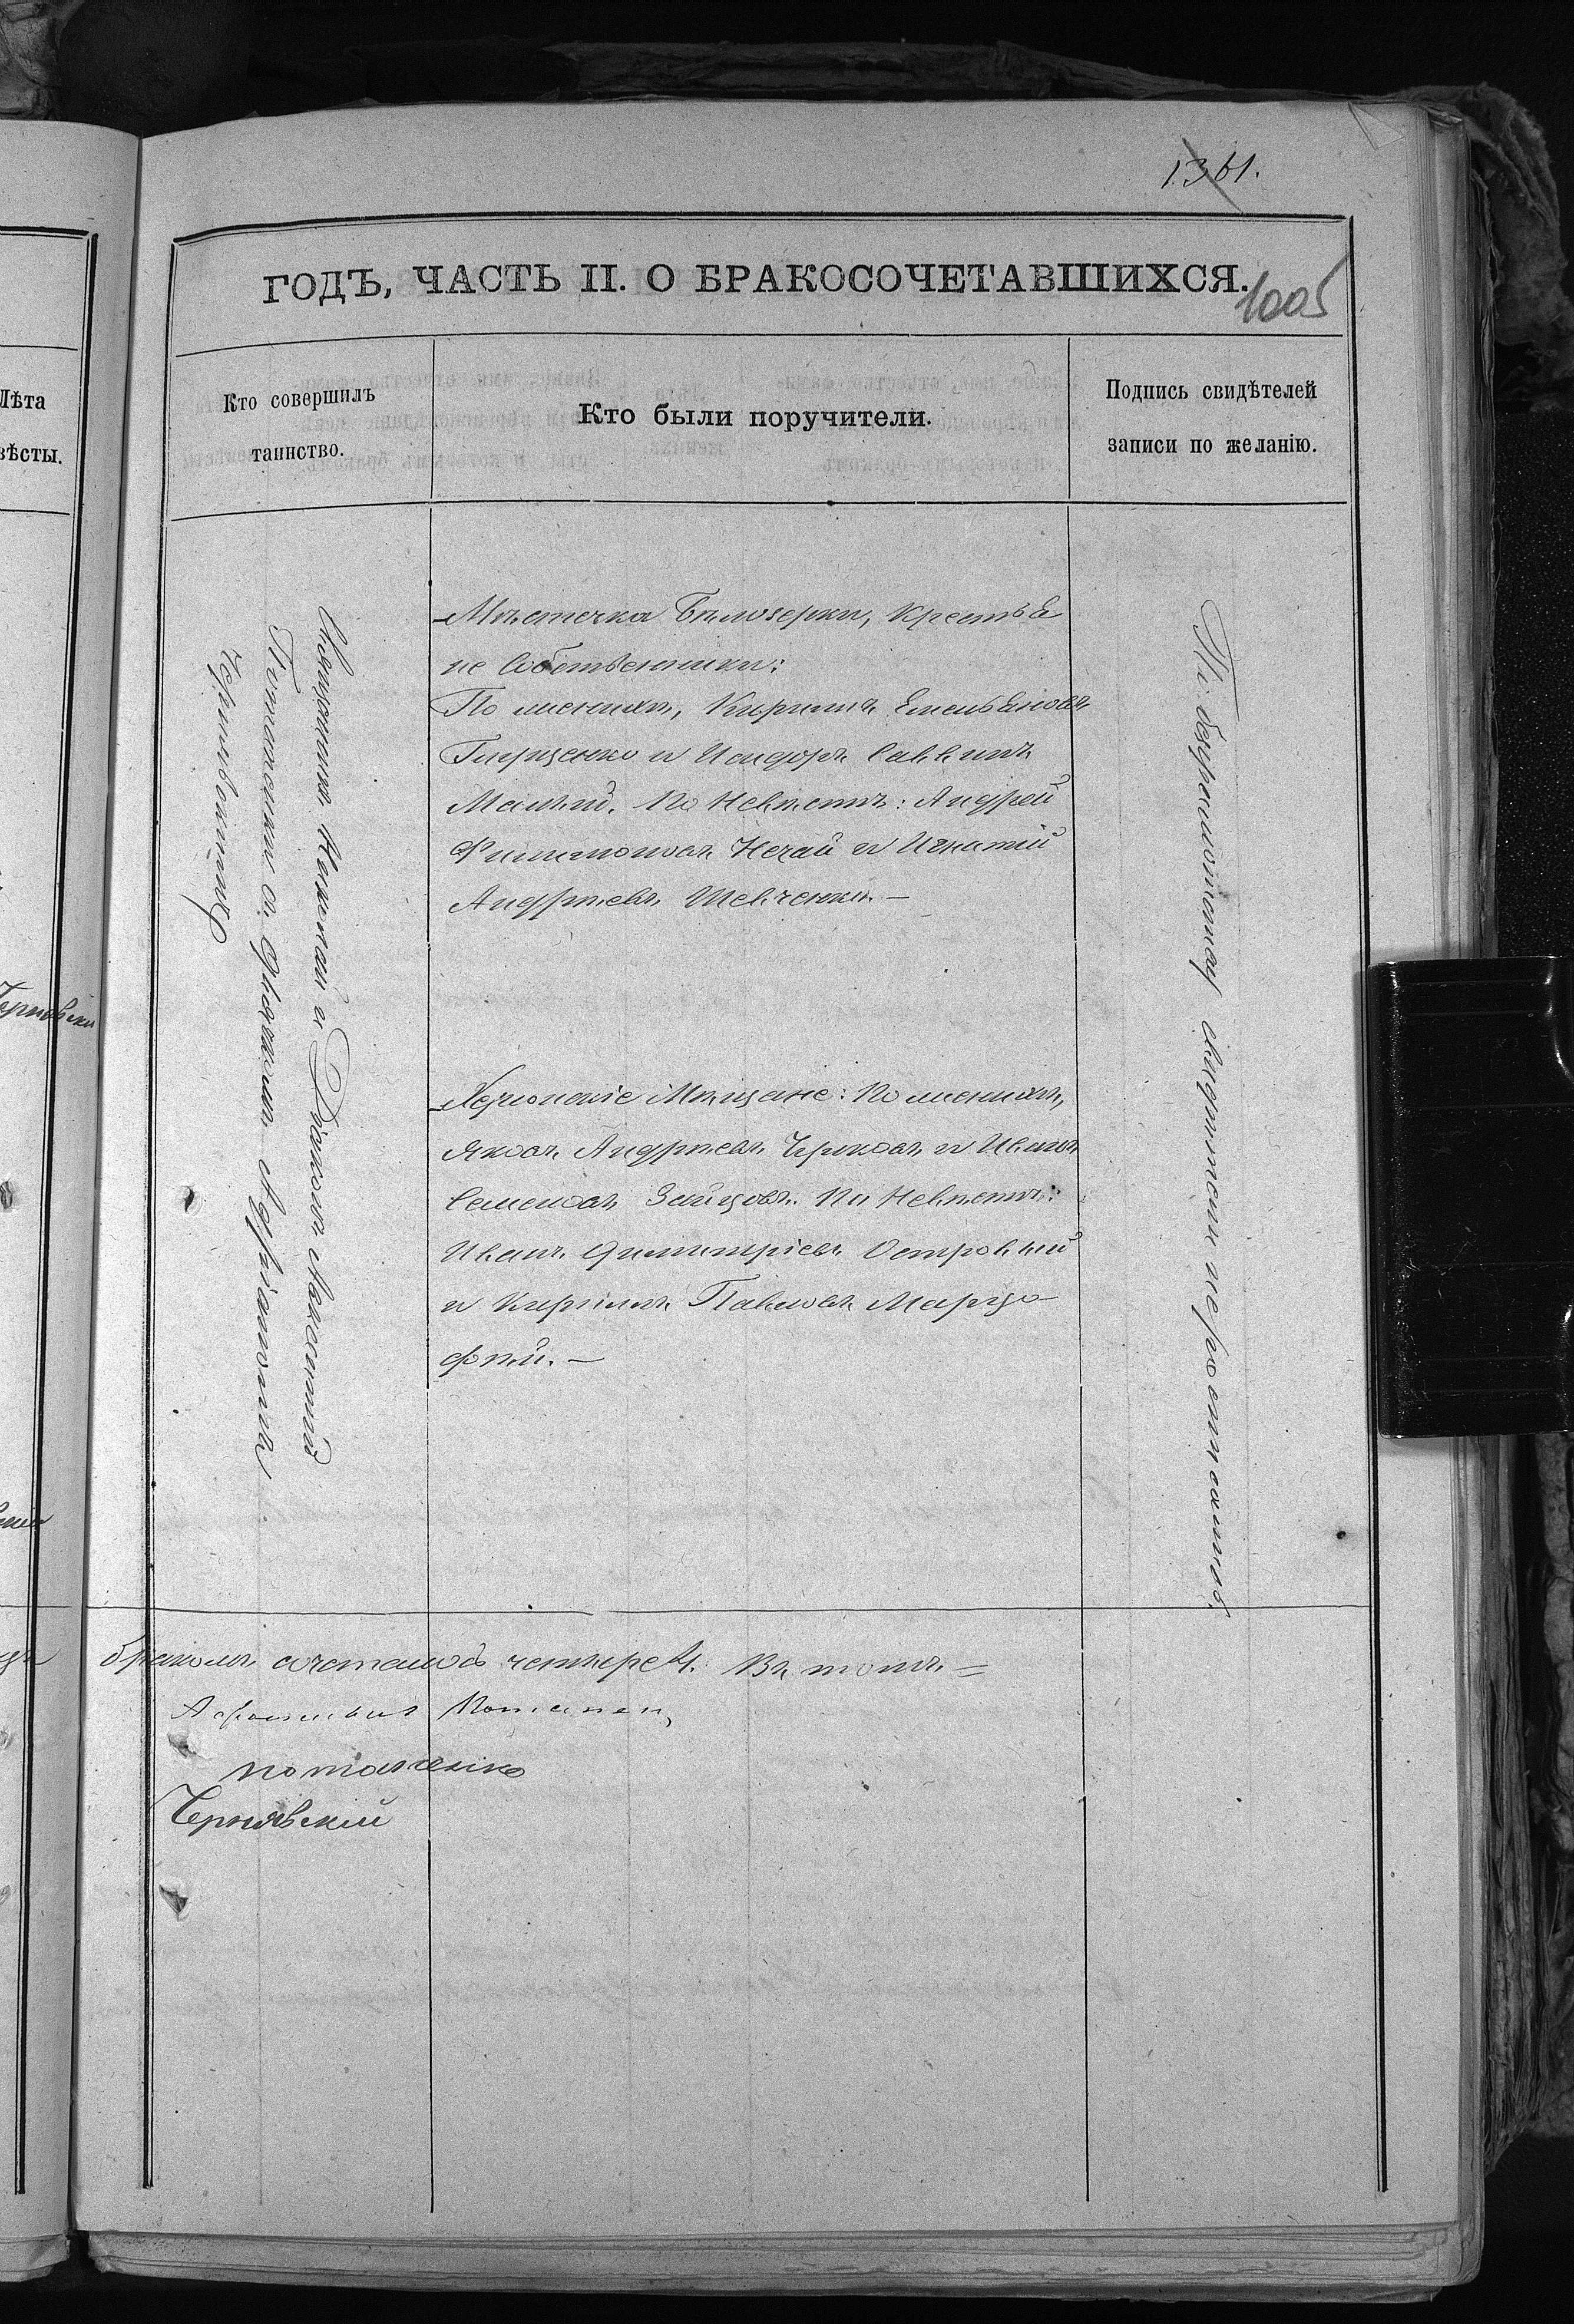 1361.
ГОДЪ, ЧАСТЬ II. О БРАКОСОЧЕТАВШИХСЯ.
1005
Лѣта
вѣсты.
Кто совершилъ
таинство.
Кто были поручители.
Подпись свидѣтелей
записи по желанію.
Священникъ Николай и Діаконъ
съ Дьячкомъ
Чернявскимъ
Мѣстечка Бѣлозерки, Крестья
не Собственники:
По женихѣ, Кириллъ Емельяновъ
Гирщенко и Исидоръ Саввинъ
Малый. По Невѣстѣ: Андрей
Филимоновъ Нечай и Игнатій
Андреевъ Шевченки. —
Херсонскіе Мѣщане: По женихѣ,
Яковъ Андреевъ и Иванъ
Семеновъ Зайцовъ. По Невѣстѣ:
Иванъ Димитріевъ Островный
и Кириллъ Павловъ Марцо-
фѣй. —
По безграмотности свидѣтели не
бракомъ сочеталось четыре 4. Въ томъ =
Чернявскій